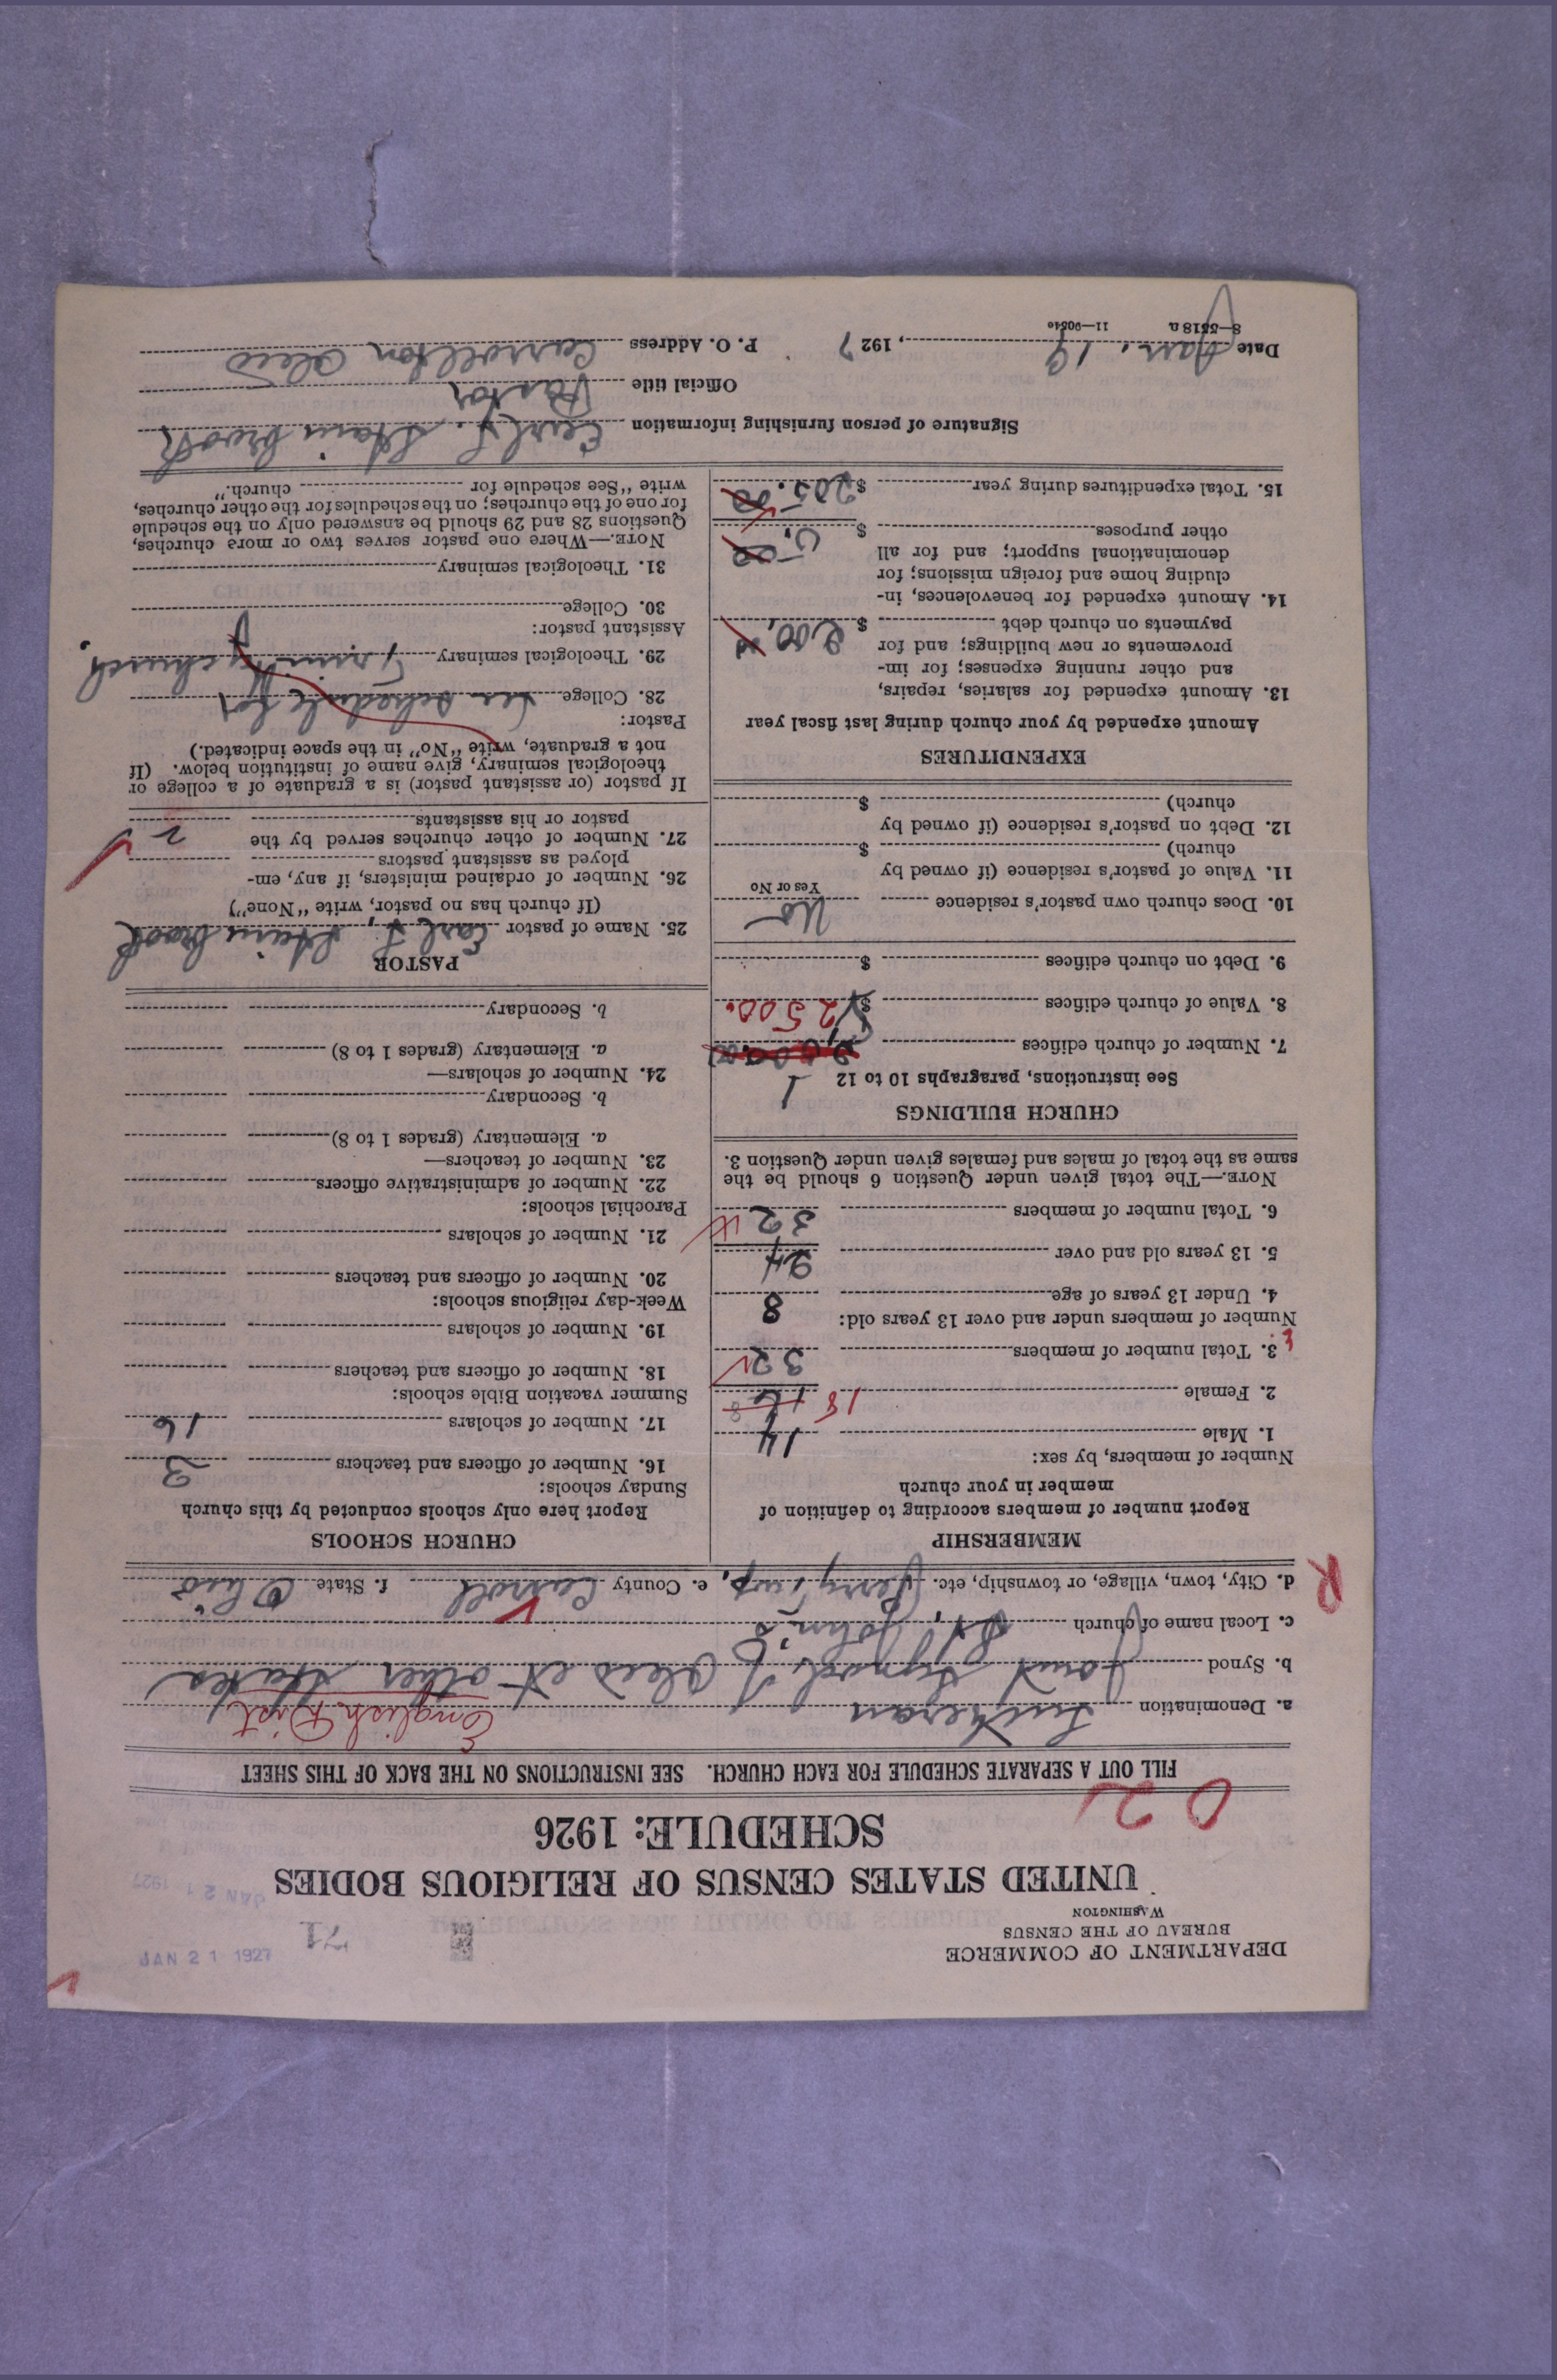 DEPARTMENT OF COMMERCE
BUREAU OF THE CENSUS
WASHINGTON
71
JAN 21 1927
UNITED STATES CENSUS OF RELIGIOUS BODIES
JAN 21 1927
SCHEDULE: 1926
0 2
FILL OUT A SEPARATE SCHEDULE FOR EACH CHURCH. SEE INSTRUCTIONS ON THE BACK OF THIS SHEET
a. Denomination Lutheran English Dist
b. Synod Joint Synod of Ohio et other States
c. Local name of church St. John's
R
d. City, town, village, or township, etc. Perry Twp, e. County Carroll f. State Ohio
MEMBERSHIP
Report number of members according to definition of
member in your church
Number of members, by sex:
1. Male 14
2. Female 18 16
3. Total number of members 32
Number of members under and over 13 years old:
4. Under 13 years of age 8
5. 13 years old and over 24
6. Total number of members 32
NOTE.—The total given under Question 6 should be the
same as the total of males and females given under Question 3.
CHURCH BUILDINGS
See instructions, paragraphs 10 to 12
1
7. Number of church edifices
8. Value of church edifices $ 2500.
9. Debt on church edifices $
10. Does church own pastor's residence No
Yes or No
11. Value of pastor's residence (if owned by
church) $
12. Debt on pastor's residence (if owned by
church) $
EXPENDITURES
Amount expended by your church during last fiscal year
13. Amount expended for salaries, repairs,
and other running expenses; for im-
provements or new buildings; and for
payments on church debt $ 200.00
14. Amount expended for benevolences, in-
cluding home and foreign missions; for
denominational support; and for all
other purposes $ 5.00
15. Total expenditures during year $ 205.00
CHURCH SCHOOLS
Report here only schools conducted by this church
Sunday schools:
16. Number of officers and teachers 3
17. Number of scholars 16
Summer vacation Bible schools:
18. Number of officers and teachers
19. Number of scholars
Week-day religious schools:
20. Number of officers and teachers
21. Number of scholars
Parochial schools:
22. Number of administrative officers
23. Number of teachers—
a. Elementary (grades 1 to 8)
b. Secondary
24. Number of scholars—
a. Elementary (grades 1 to 8)
b. Secondary
PASTOR
25. Name of pastor Earl F. Stainbrook
(If church has no pastor, write "None")
26. Number of ordained ministers, if any, em-
ployed as assistant pastors
27. Number of other churches served by the
pastor or his assistants 2
If pastor (or assistant pastor) is a graduate of a college or
theological seminary, give name of institution below. (If
not a graduate, write "No" in the space indicated.)
Pastor:
28. College See schedule for
29. Theological seminary Trinity church.
Assistant pastor:
30. College
31. Theological seminary
NOTE.—Where one pastor serves two or more churches,
Questions 28 and 29 should be answered only on the schedule
for one of the churches; on the schedules for the other churches,
write "See schedule for church."
Signature of person furnishing information Earl F. Stainbrook
Official title Pastor
Date Jan. 19, 1927 P. O. Address Carrollton Ohio
8—5518 a 11—9054e